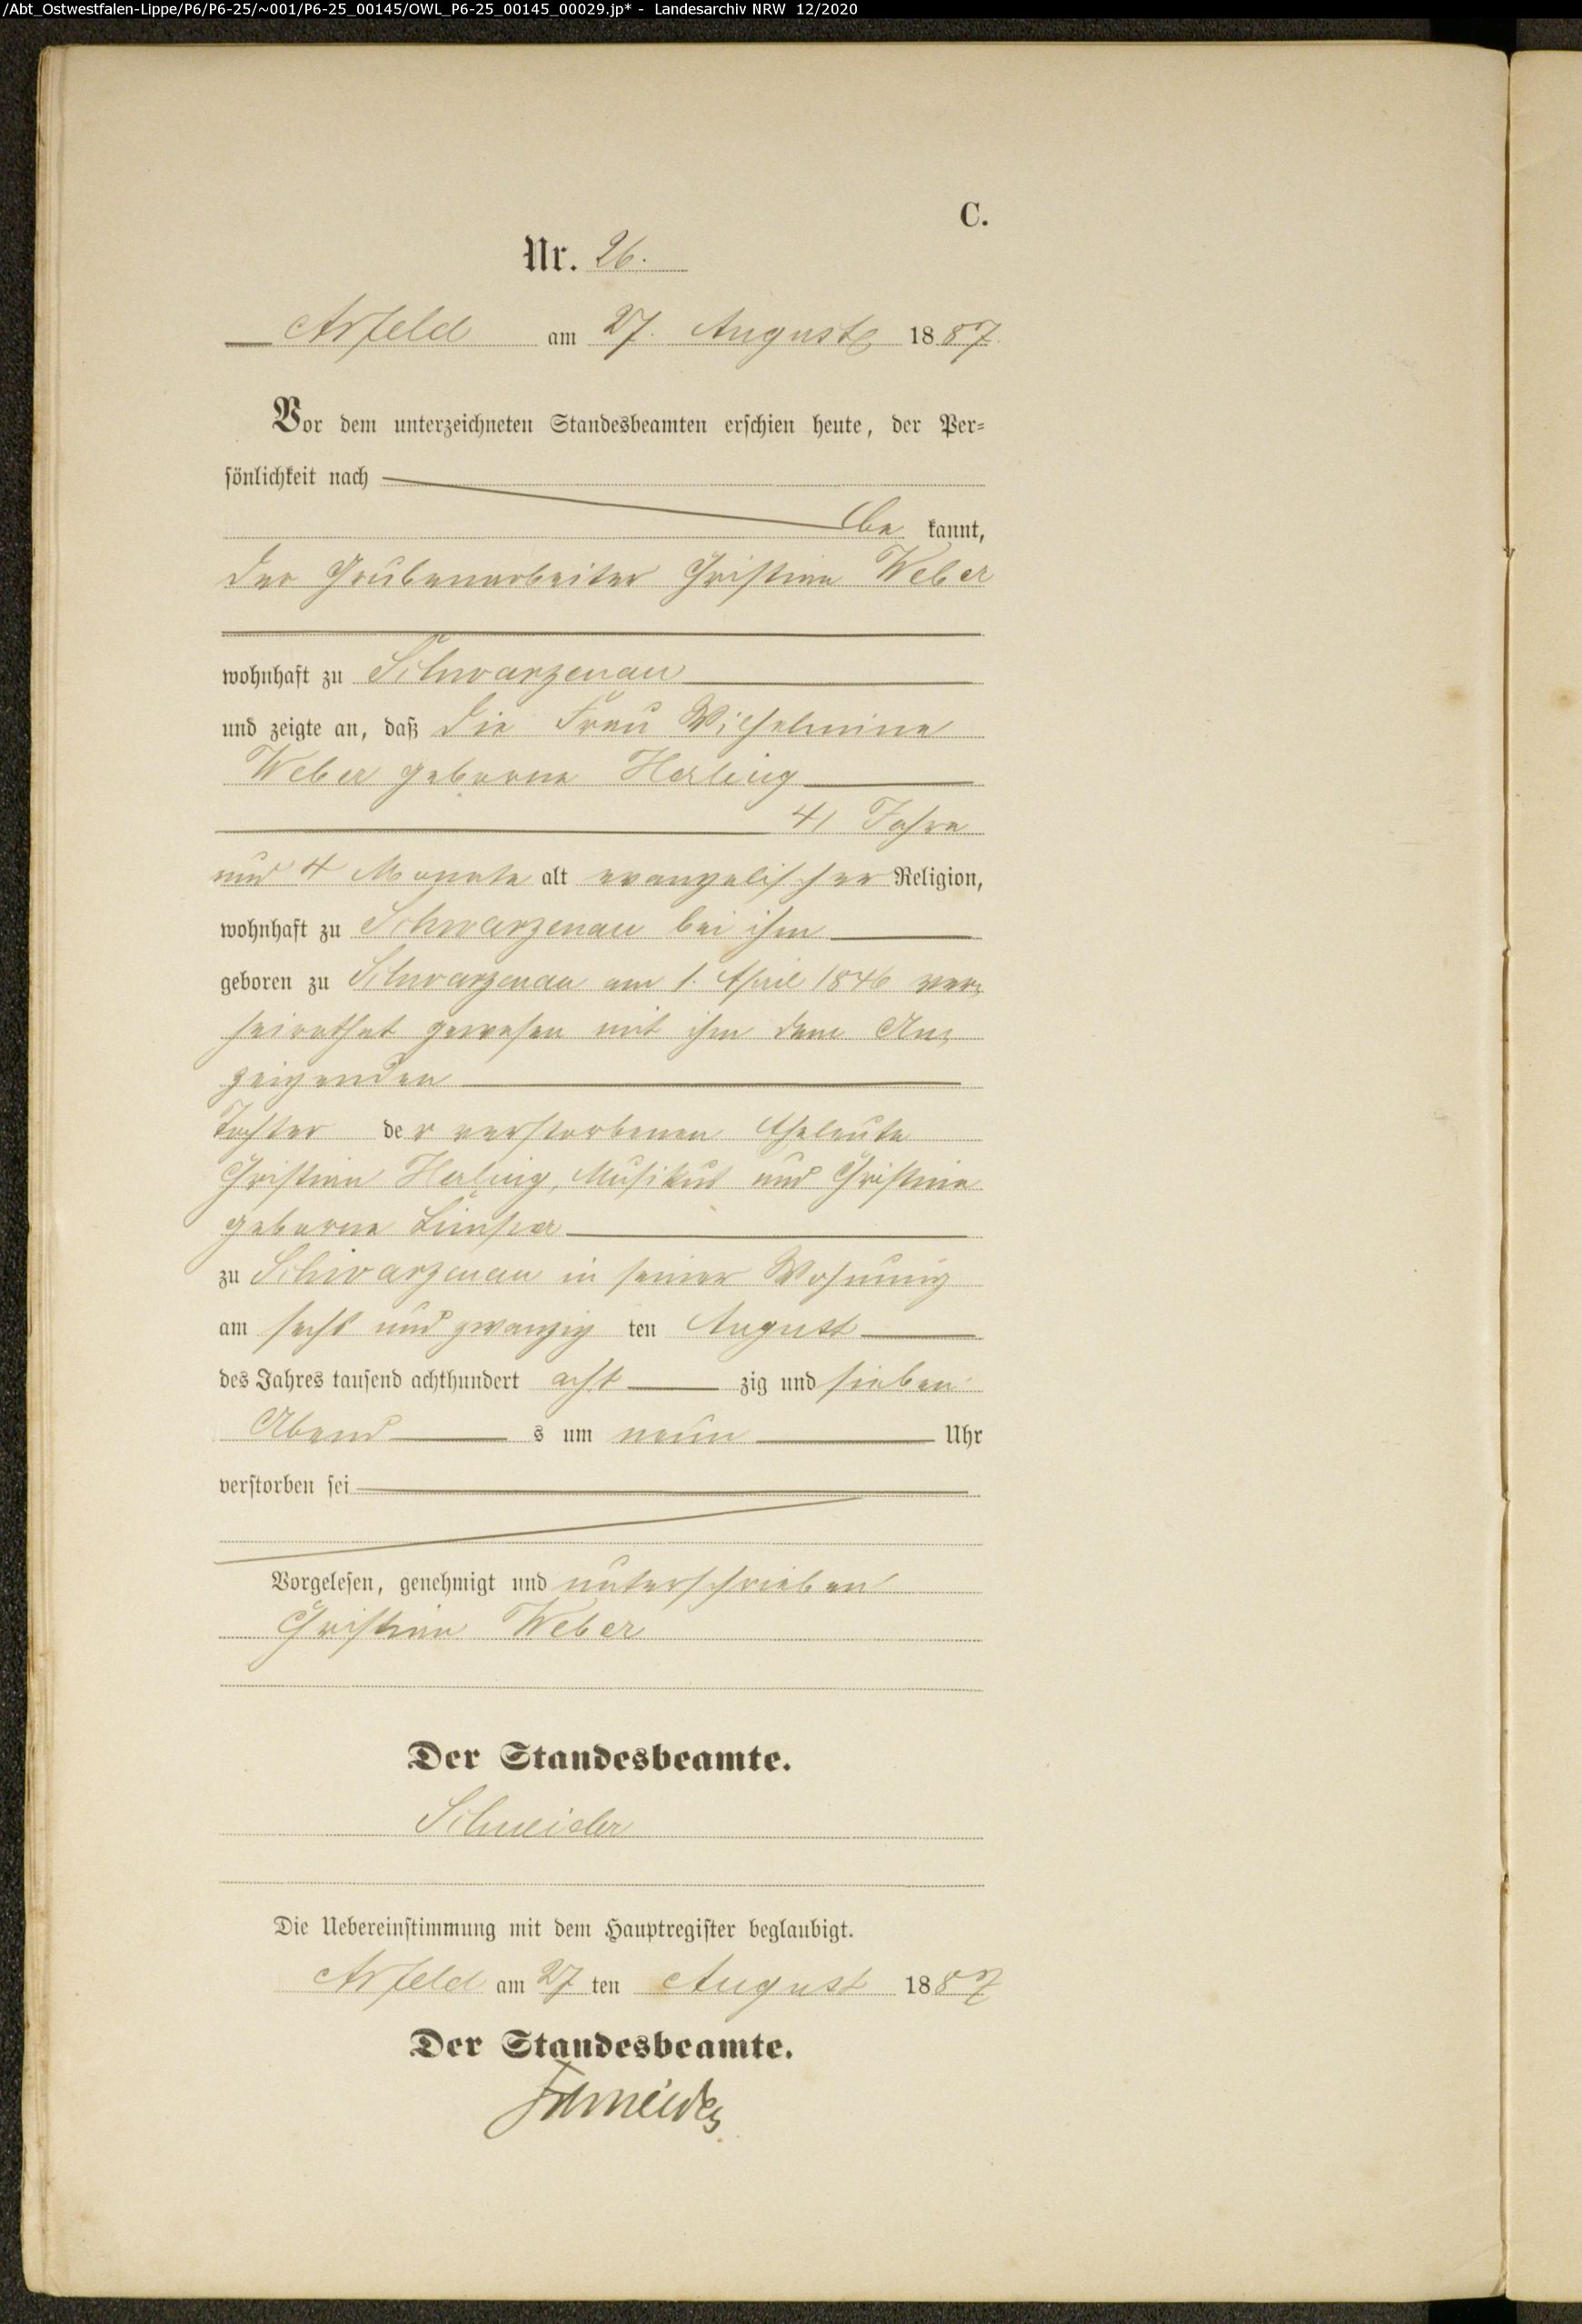 /Abt_Ostwestfalen-Lippe/P6/P6-25/~001/P6-25_00145/OWL_P6-25_00145_00029.jp* - Landesarchiv NRW 12/2020
C.
Nr. 26.
Arfeld am 27. August 1887.
Vor dem unterzeichneten Standesbeamten erschien heute, der Per-
sönlichkeit nach
be kannt,
der Grubenarbeiter Christian Weber
wohnhaft zu Schwarzenau
und zeigte an, daß die Frau Wilhelmine
Weber geborne Herling
41 Jahre
und 4 Monate alt evangelischer Religion,
wohnhaft zu Schwarzenau bei ihm
geboren zu Schwarzenau am 1. April 1846 ver-
heirathet gewesen mit ihm dem An-
zeigenden
Tochter der verstorbenen Eheleute
Christian Herling, Musikus und Christine
geborne
zu Schwarzenau in seiner Wohnung
am sechs und zwanzig ten August
des Jahres tausend achthundert acht zig und sieben
Abend s um neun Uhr
verstorben sei
Vorgelesen, genehmigt und unterschrieben
Christian Weber
Der Standesbeamte.
Schneider
Die Uebereinstimmung mit dem Hauptregister beglaubigt.
Arfeld am 27 ten August 1887
Der Standesbeamte.
Schneider